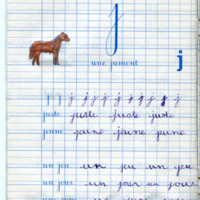 j
une jument
j
j j j j j j j j j
juste juste juste juste
jaune jaune jaune jaune
un jeu un jeu un jeu
un jour un jour un jour